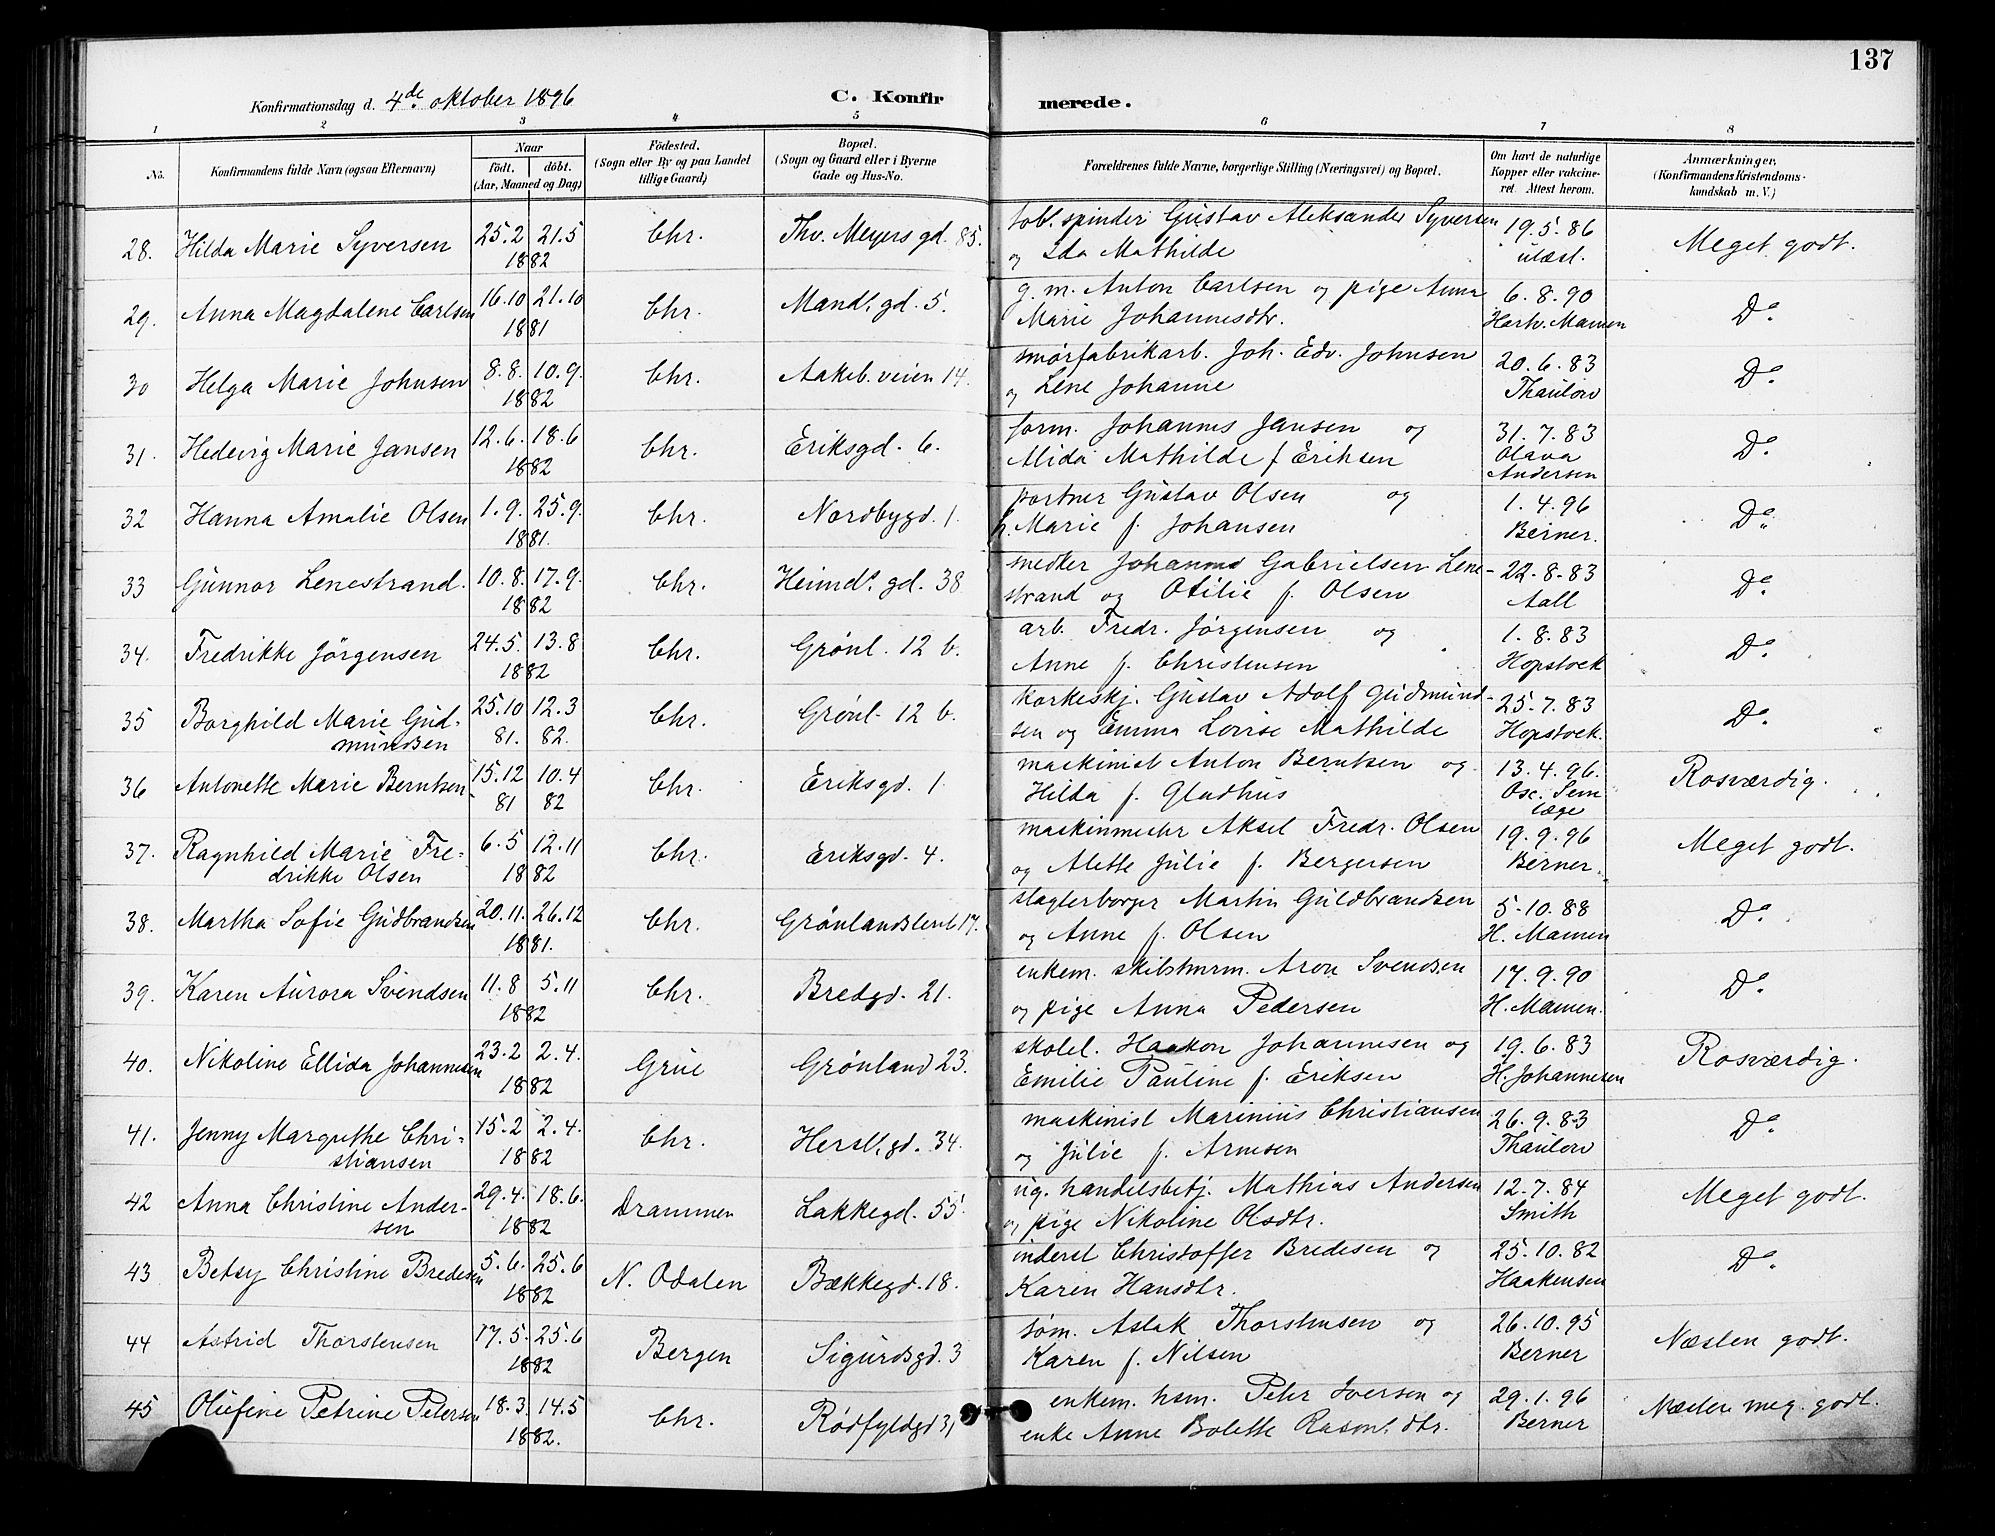 137
Konfirmationsdag d. 4de oktober 1896 C. Konfir merede.
1 2 3 4 5 6 7 8
No. Konfirmandens fulde Navn (ogsaa Efternavn) Naar født. døbt. (Aar, Maaned og Dag) Födested. (Sogn eller By og paa Landet tillige Gaard) Bopæl. (Sogn og Gaard eller i Byerne Gade og Hus-No. Forældrenes fulde Navne, borgerlige Stilling (Næringsvei) og Bopæl. Om havt de naturlige Kopper eller vakcineret. Attest herom. Anmærkninger. (Konfirmandens Kristendomskundskab m. V.)
28. Hilda Marie Syversen 25.2 21.5 1882 Chr. Thv. Meyers gd. 85. tob. spinder Gustav Aleksander Syversen og Ida Mathilde 19.5.86 ulæsl. Meget godt.
29. Anna Magdalene Carlsen 16.10 21.10 1881 Chr. Mand. gd. 5. g. m. Anton Carlsen og pige Anna Marie Johannesdtr. 6.8.90 Harh. Mamen Do.
30 Helga Marie Johnsen 8.8. 10.9. 1882 Chr. Aakeb. veien 14. smørfabrikarb. Joh. Edv. Johnsen og Lene Johanne 20.6.83 Thaulow Do.
31. Hedevig Marie Jansen 12.6. 18.6 1882 Chr. Eriksgd. 6. form. Johannes Jansen og Alida Mathilde f. Eriksen 31.7.83 Olava Andersen Do.
32 Hanna Amalie Olsen 1.9. 25.9. 1881. Chr. Nordbygd. 1. portner Gustav Olsen og h. Marie f. Johansen 1.4.96 Berner. Do.
33 Gunnor Lenestrand. 10.8. 17.9. 1882 Chr. Heimd. gd. 38 snedker Johannes Gabrielsen Lenestrand og Otilie f. Olsen 22-8-83 Aall Do.
34. Fredrikke Jørgensen 24.5. 13.8 1882 Chr. Grønl. 12 b. arb. Fredr. Jørgensen og Anne f. Christensen 1.8.83 Hopstock Do.
35 Borghild Marie Gudmundsen 25.10 12.3 81. 82. Chr. Grønl. 12 b. korkeskj. Gustav Adolf Gudmundsen og Emma Lovise Mathilde 25-7.83 Hopstock. Do.
36 Antonette Marie Berntsen 15.12 10.4 81 82 Chr. Eriksgd. 1. maskinist Anton Berntsen og Hilda f. Gladhus 13.4.96. Osc. Sem læge Rosværdig.
37. Ragnhild Marie Fredrikke Olsen 6.5 12.11 1882 Chr. Eriksgd. 4. maskinmester Aksel Fredr. Olsen og Alette Julie f. Bergersen 19.9.96 Berner. Meget godt.
38. Martha Sofie Gudbrandsen 20.11. 26.12 1881. Chr. Grønlandsleret 17. slagterborger Martin Guldbrandsen og Anne f. Olsen 5-10.88 H. Mamen Do.
39. Karen Aurora Svendsen 11.8 5.11 1882 Chr. Bredgd. 21. enkem. skibstmrm. Aron Svendsen og pige Anna Pedersen 17.9.90 H. Mamen. Do.
40. Nikoline Ellida Johannesen 23.2 2.4. 1882 Grue Grønland 23. skolel. Haakon Johannesen og Emilie Pauline f. Eriksen 19.6.83 H. Johannesen Rosværdig.
41. Jenny Margrethe Christiansen 15.2 2.4. 1882 Chr. Hersl. gd. 34. maskinist Marinius Christiansen og Julie f. Arnesen 26.9.83 Thaulow Do.
42 Anna Christine Andersen 29.4. 18.6. 1882 Drammen Lakkegd. 55 ug. handelsbetj. Mathias Andersen og pige Nikoline Olsdtr. 12.7.84 Smith Meget godt.
43 Betsy Christine Bredesen 5.6. 25.6 1882 N. Odalen Bækkegd. 18. inderst Christoffer Bredesen og Karen Hansdtr. 25.10.82 Haakensen Do.
44 Astrid Thorstensen 17.5. 25.6 1882 Bergen Sigurdsgd. 3 søm. Aslak Thorstensen og Karen f. Nilsen 26.10.95 Berner Næsten godt.
45 Olufine Petrine Petersen 18.3. 14.5 1882. Chr. Rødfyldgd 31 enkem. hsm. Peter Iversen og enke Anne Bolette Rasm. dtr. 29.1.96 Berner Næsten meg. godt.